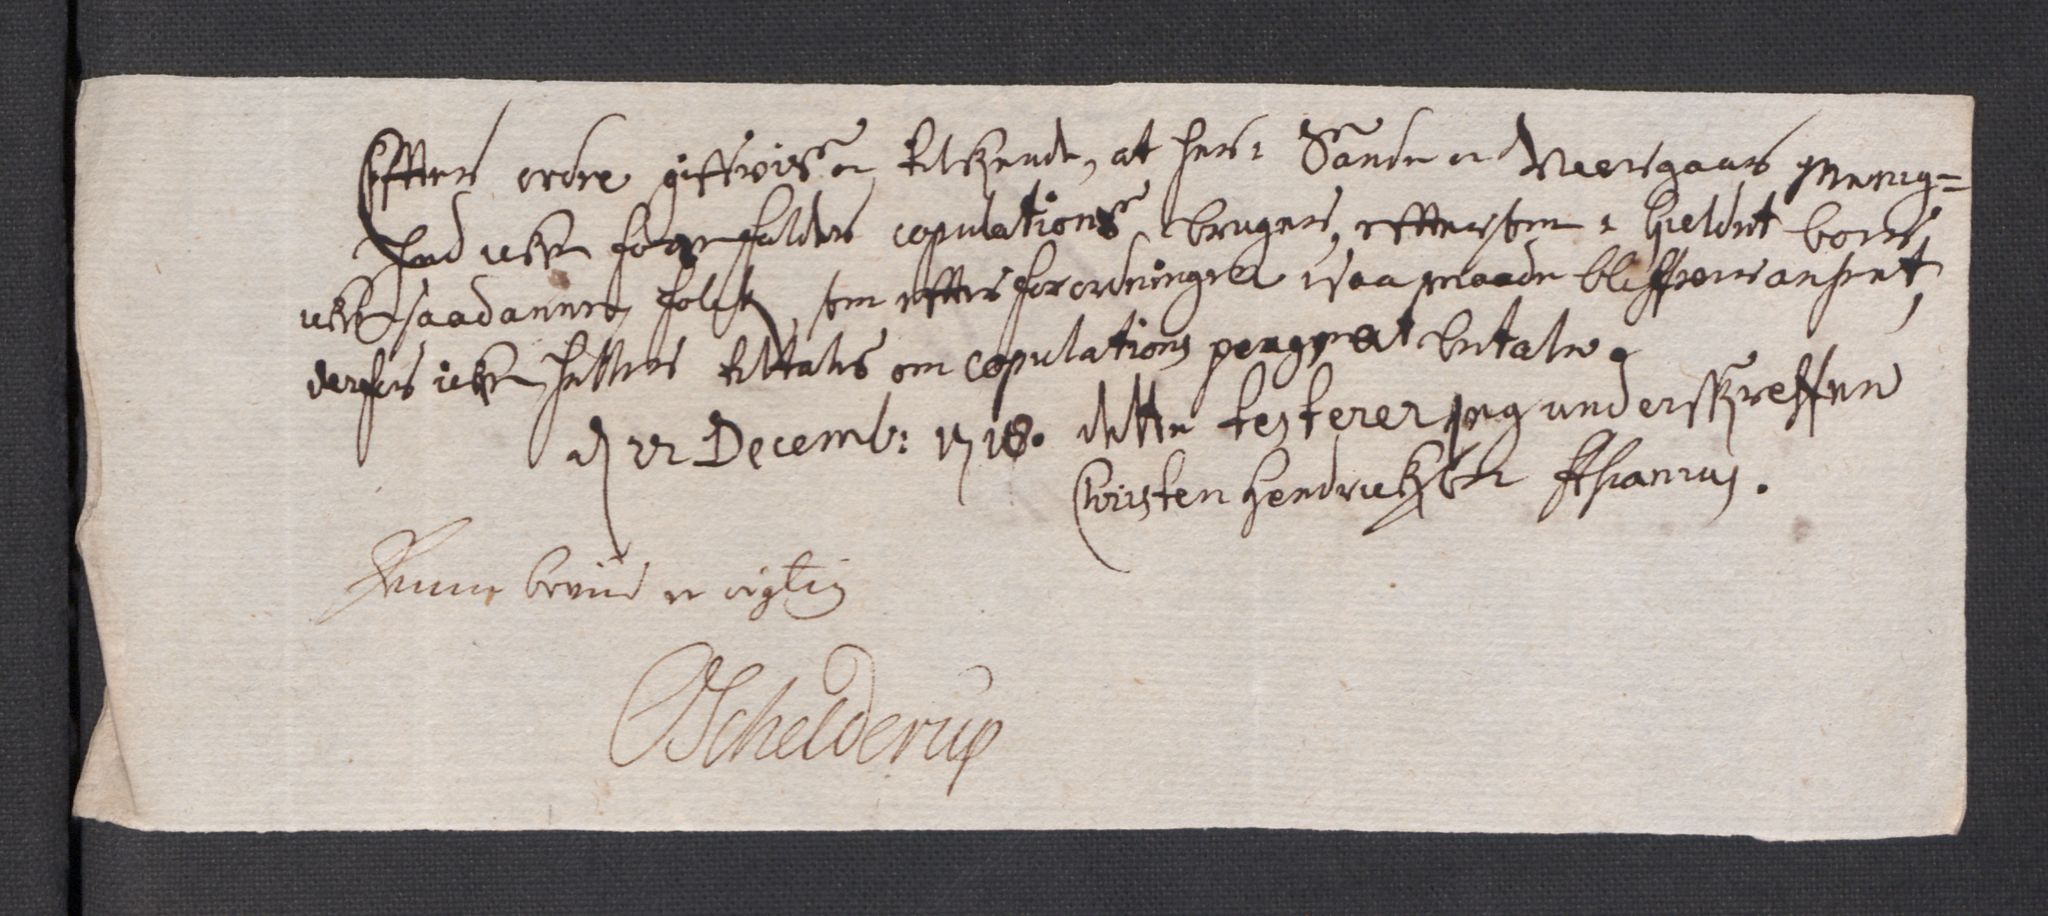 Effter ordre giffwis en tilkende, at her i Sande og Weergaar Menig=
hed icke forrefalder copulations brugere, efftersom i Gieldet boer
icke saadanne folck, som effter forordningen i saa maade bliffwer anseet,
derfor icke heller tiltalis om copulations pengget betale.
d 22 Decemb: 1718. dette testerer jeg underskreffen
Christen Hendrickssøn
Denne beviis er rigtig
Schelderup